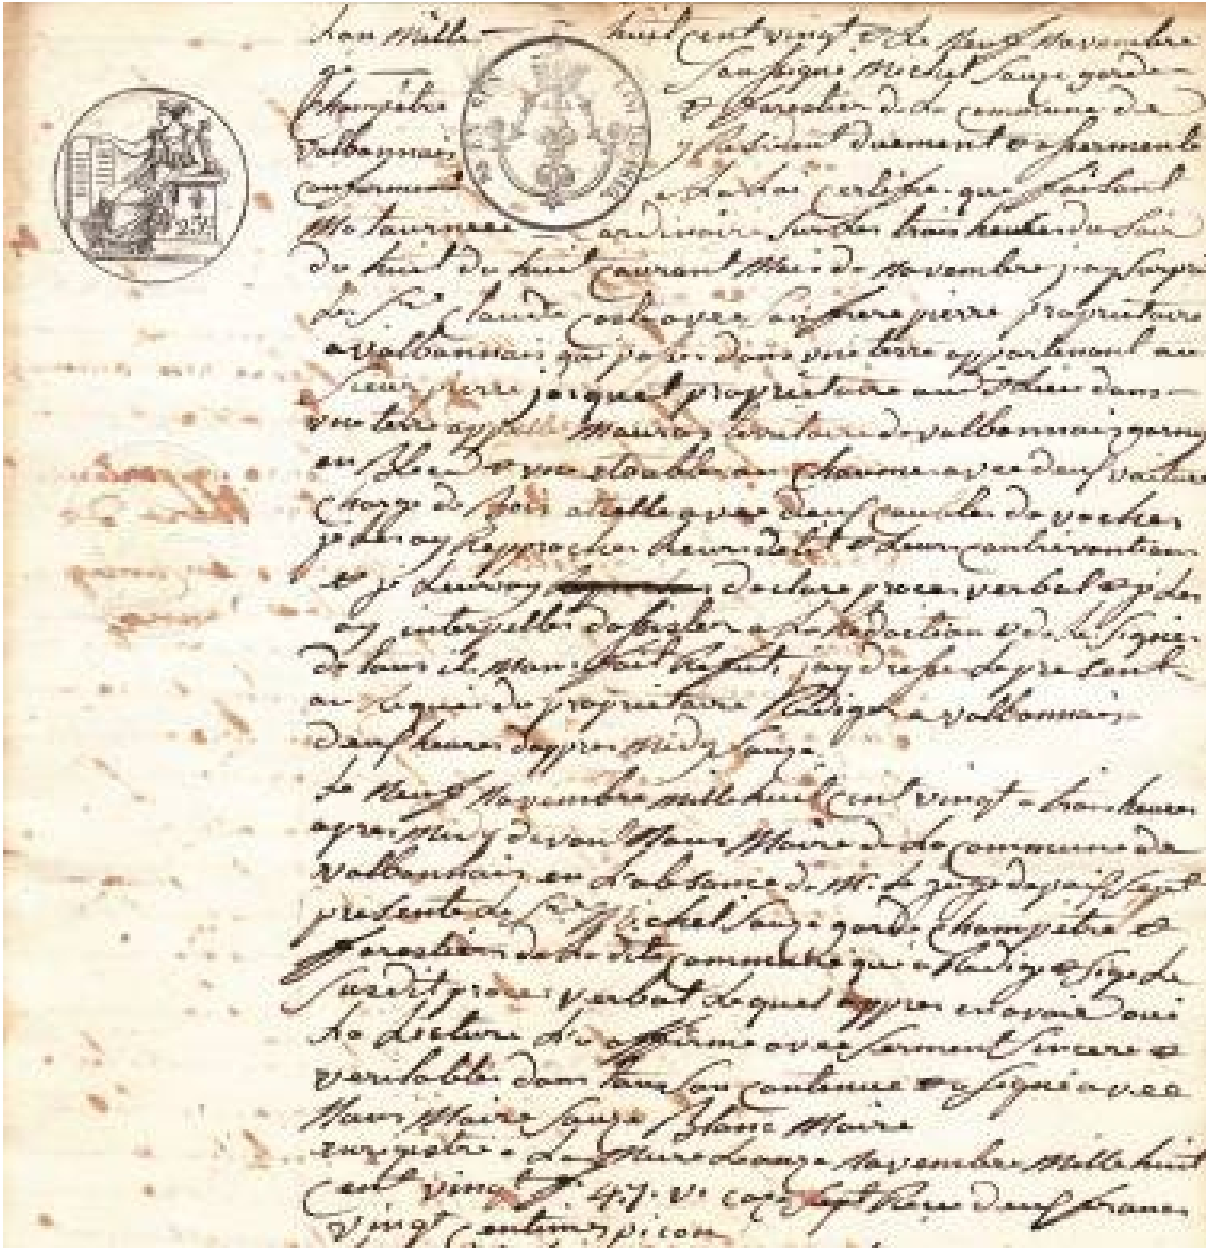 Lan mille huit cent vingt & le neuf novembre
je Soussigné michel Sauze garde
Champêtre & forestier de la commune de
valbonnais y Résident duement & asermenté
conformement a la loi certifie que faisant
ma tournée ordinaire Sur les trois heures du Soir
du huit du huit courant mois de novembre j'ay Surpri
Le Sr Claude Coste avec Son frere pierre propriétaire
a valbonnais qui dans une terre appartenant au
Sieur pierre jacquet propriétaire audit lieu dans
une terre appellé territoire de valbonnais garny
en Bled & une etouble ou chaume avec deux voiture
chargé de Bois attellé avec deux couble de vaches
je leur ay Reproché leur delit & leur contrevention
& je leur ay declaré procès verbal & je les
ay interpellés d'assister a la Redaction & de le Signer
de tous ils Refusé j'ay dressé le present
au Requis du propriétaire Redigé a valbonnais
deux heures d'appres midy Sauze.
Le neuf novembre mille huit cent vingt a trois heures
apres midy devant Nous Maire de la commune de
valbonnais en L'absance de Mr. Le juge de paix S'est
présenté le Sr Michel Sauze garde champêtre &
forestier de la dite commune qui a Redigé & Signé Le
Susdit procès verbal Lequel appres en avoir oui
La Lecture L'a affirmé avec Serment Sincere &
veritable dans tout Son contenue & a Signé avec
Nous Maire Sauze Blanc Maire
enregistré a La Mure Le onze novembre mille huit
cent vingt fo 47. Vo case Sept Reçu deux francs
vingt centimes picon